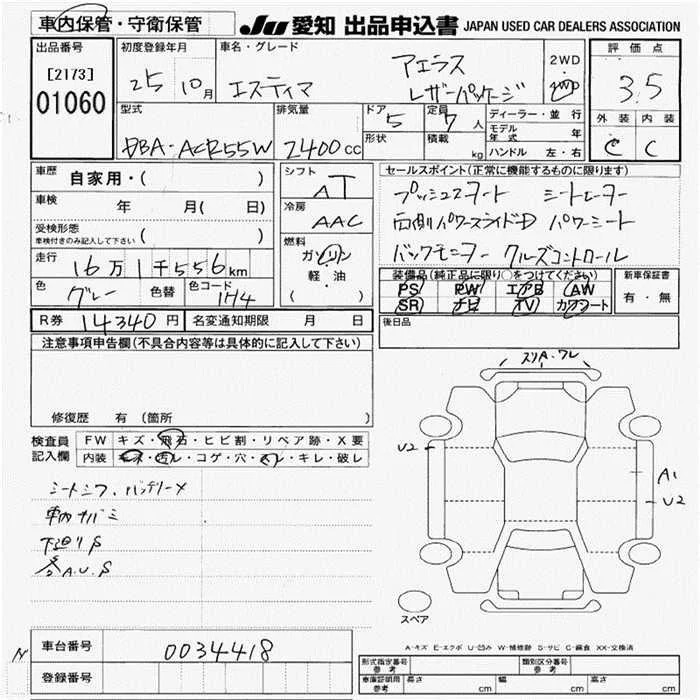 車内保管・守衛保管
JU 愛知 出品申込書 JAPAN USED CAR DEALERS ASSOCIATION
出品番号
[2173]
01060
初度登録年月
25年10月
車名・グレード
エスティマ
アエラス
レザーパッケージ
2WD
・
4WD
評価点
3.5
外装 内装
C C
型式
DBA-ACR55W
排気量
2400cc
ドア
5
形状
定員
7人
積載
kg
ディーラー・並行
モデル年式 年
ハンドル 左・右
車歴
自家用・( )
車検
年 月( 日)
受検形態
車検付きのみ記入して下さい ( )
走行
16万1千556km
色
グレー
色替
色コード
1H4
シフト
AT
冷房
AAC
燃料
ガソリン
軽・油
( )
セールスポイント(正常に機能するものに限ります)
プッシュスタート シートヒーター
両側パワースライドD パワーシート
バックモニター クルーズコントロール
装備品(純正品に限り○をつけてください)
PS PW エアB AW
SR ナビ TV カワシート
新車保証書
有・無
R券 14340円
名変通知期限 月 日
後日品
注意事項申告欄(不具合内容等は具体的に記入して下さい)
修復歴 有 (箇所 )
検査員記入欄
FW キズ・飛石・ヒビ割・リペア跡・X要
内装 キズ・汚レ・コゲ・穴・スレ・キレ・破レ
車内
下廻りS
A.U.S
スリA・ワレ
U2
A1
U2
スペア
A-キズ E-エクボ U-凹み W-補修跡 S-サビ C-腐食 XX-交換済
車台番号
0034418
登録番号
N
形式指定番号
参考
類別区分番号
参考
車庫証明用
参考
長さ cm 幅 cm 高さ cm